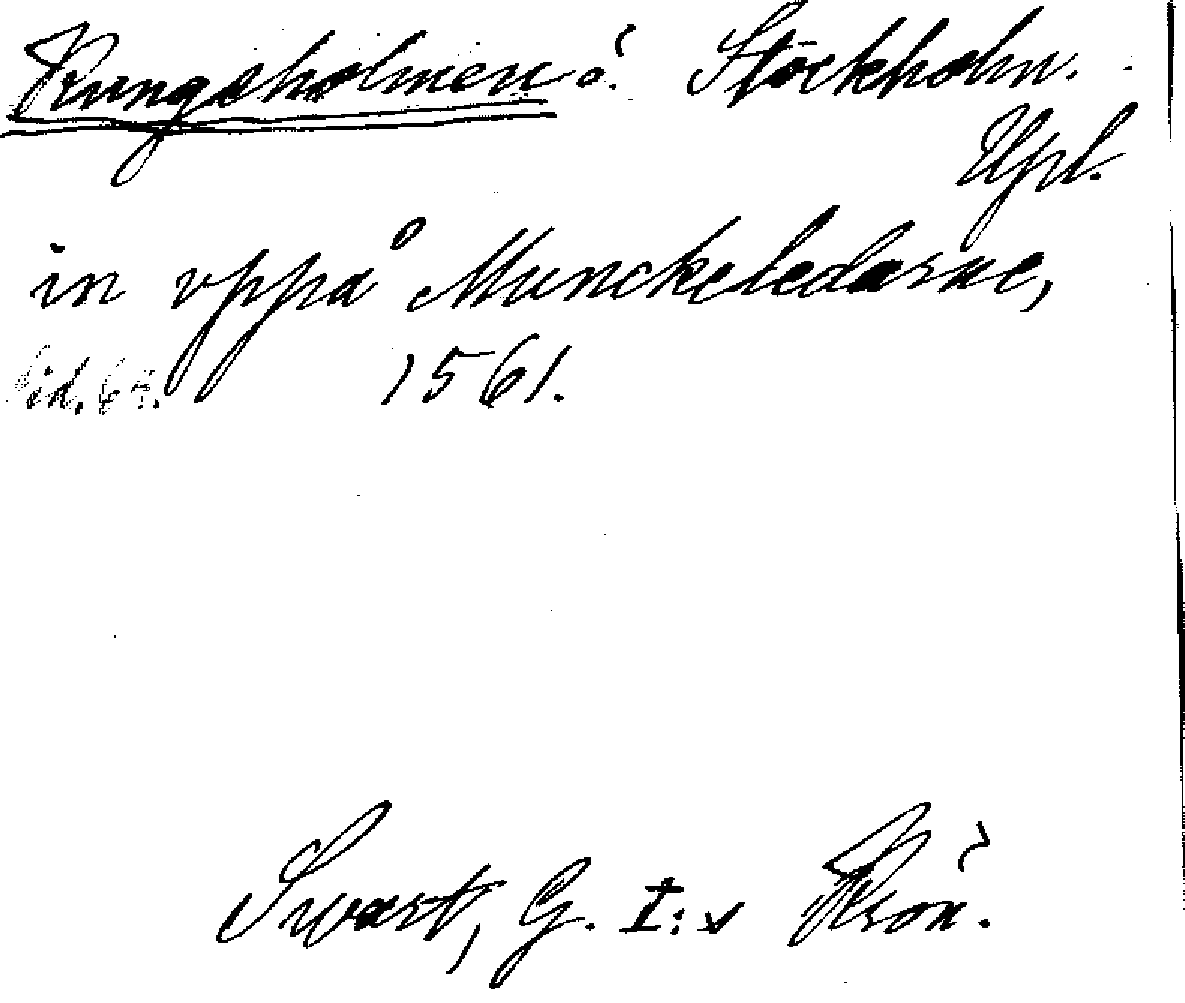 Kungsholmen i Stockholm.
Upl.
in vppå Munckeledarne,
Sid. 64. 1561.
Swart, G. I:s Krön.